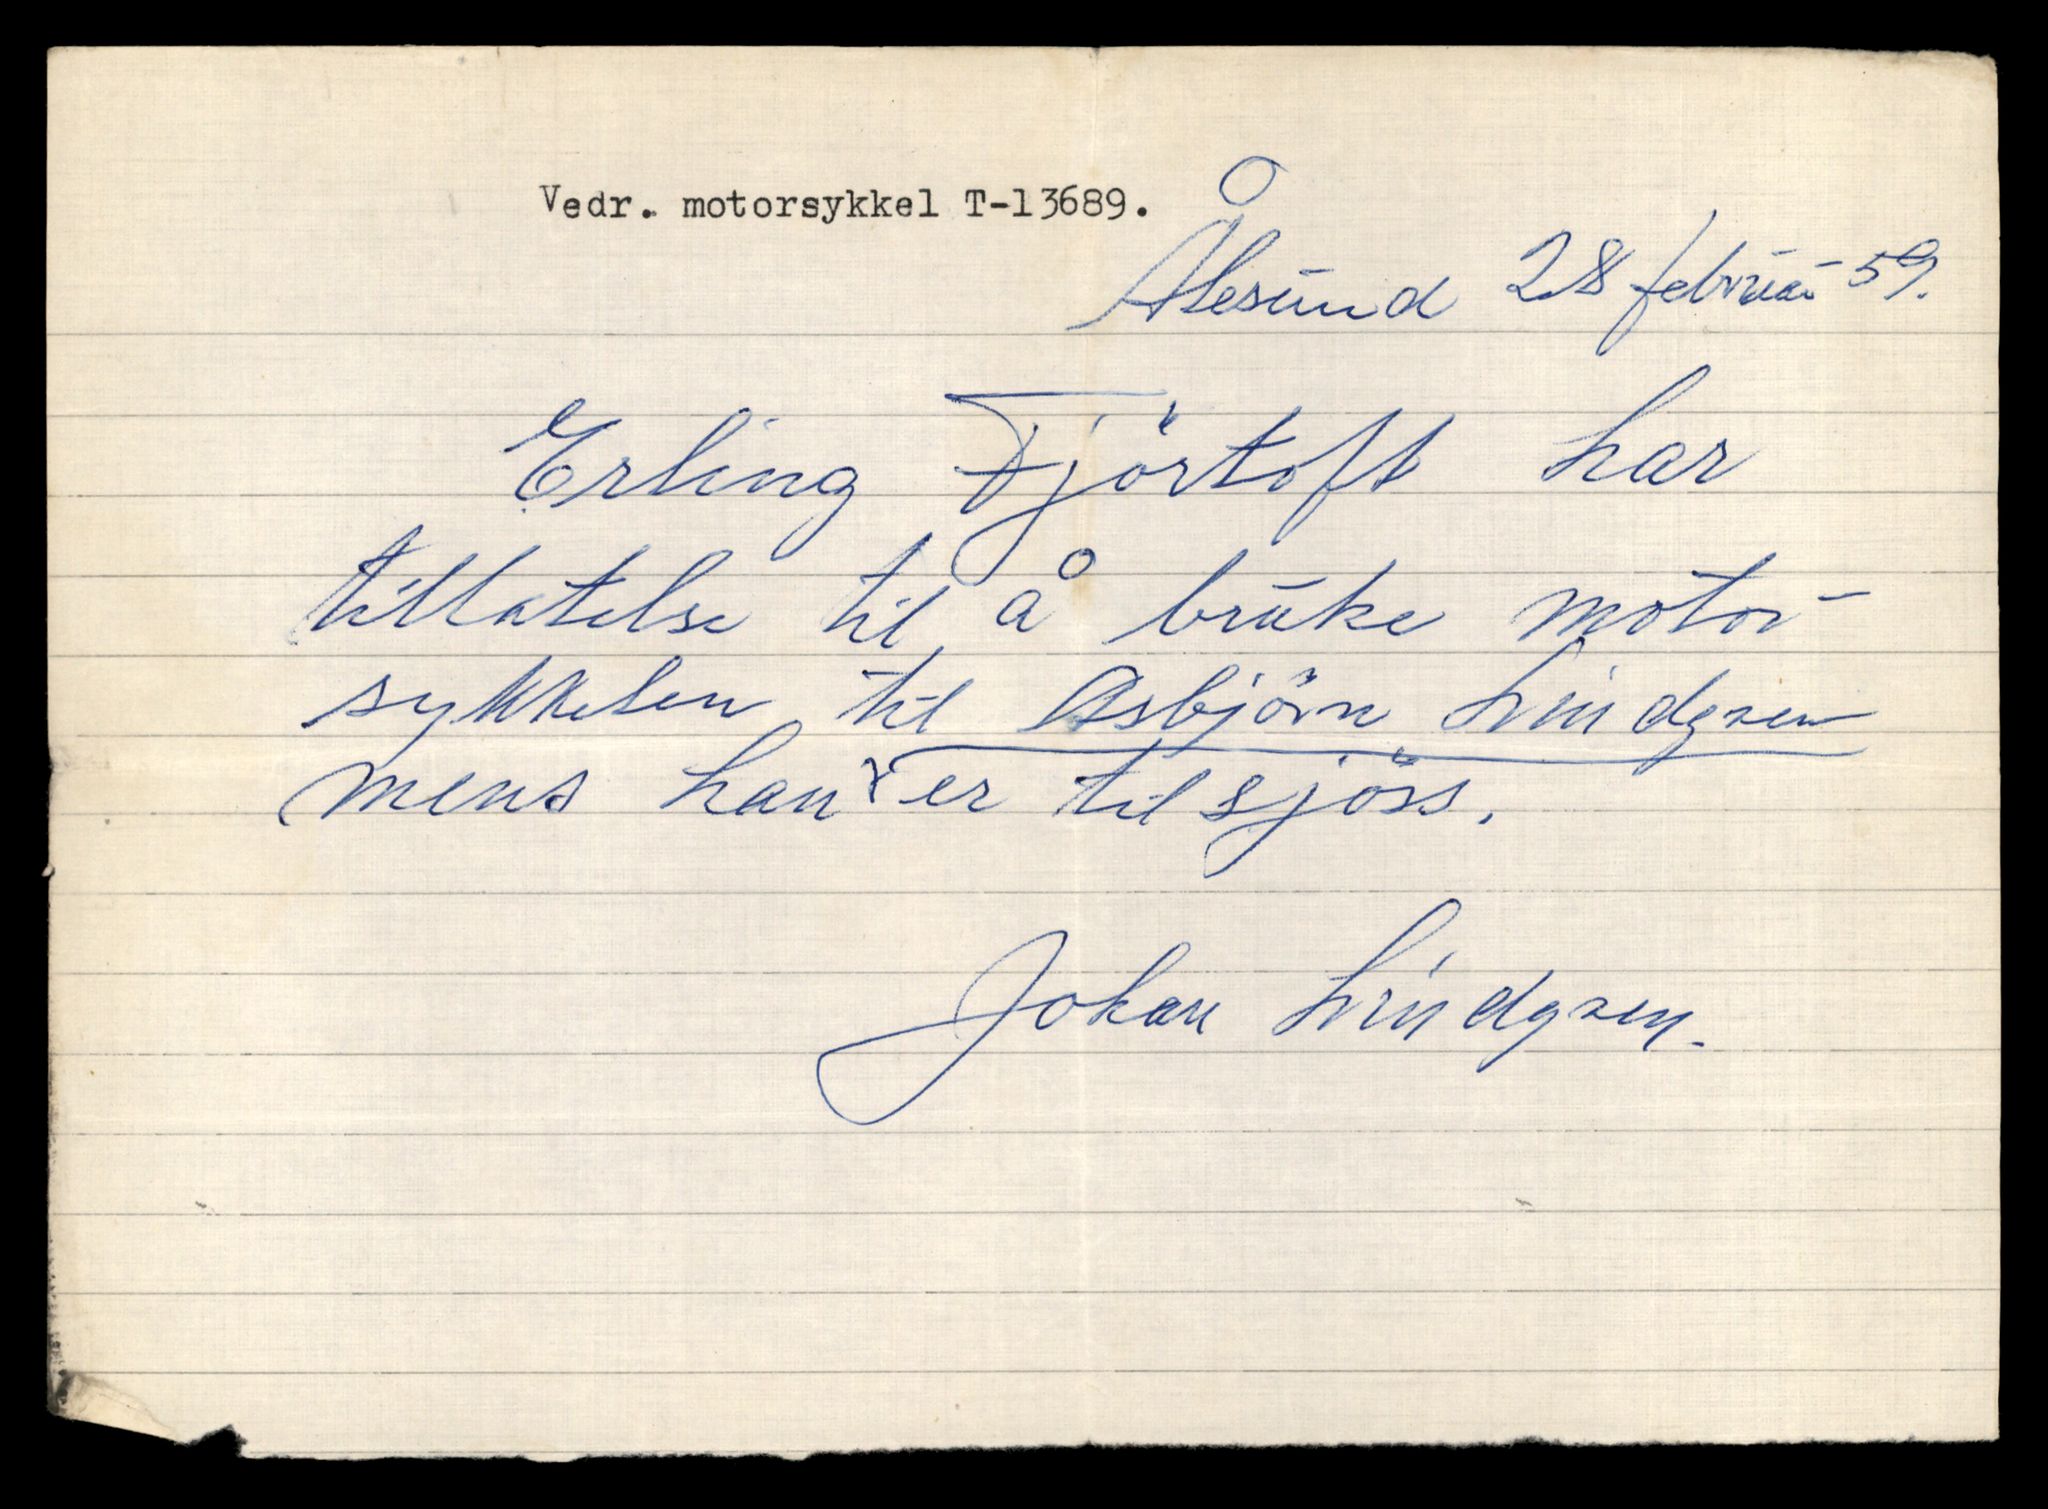 Vedr. motorsykkel T-13689.
Ålesund 28 februar 59.
Erling Fjörtoft har
tillatelse til å bruke motor
sykkelen til Asbjörn Lindgren
mens han er til sjöss.
Johan Lindgren.